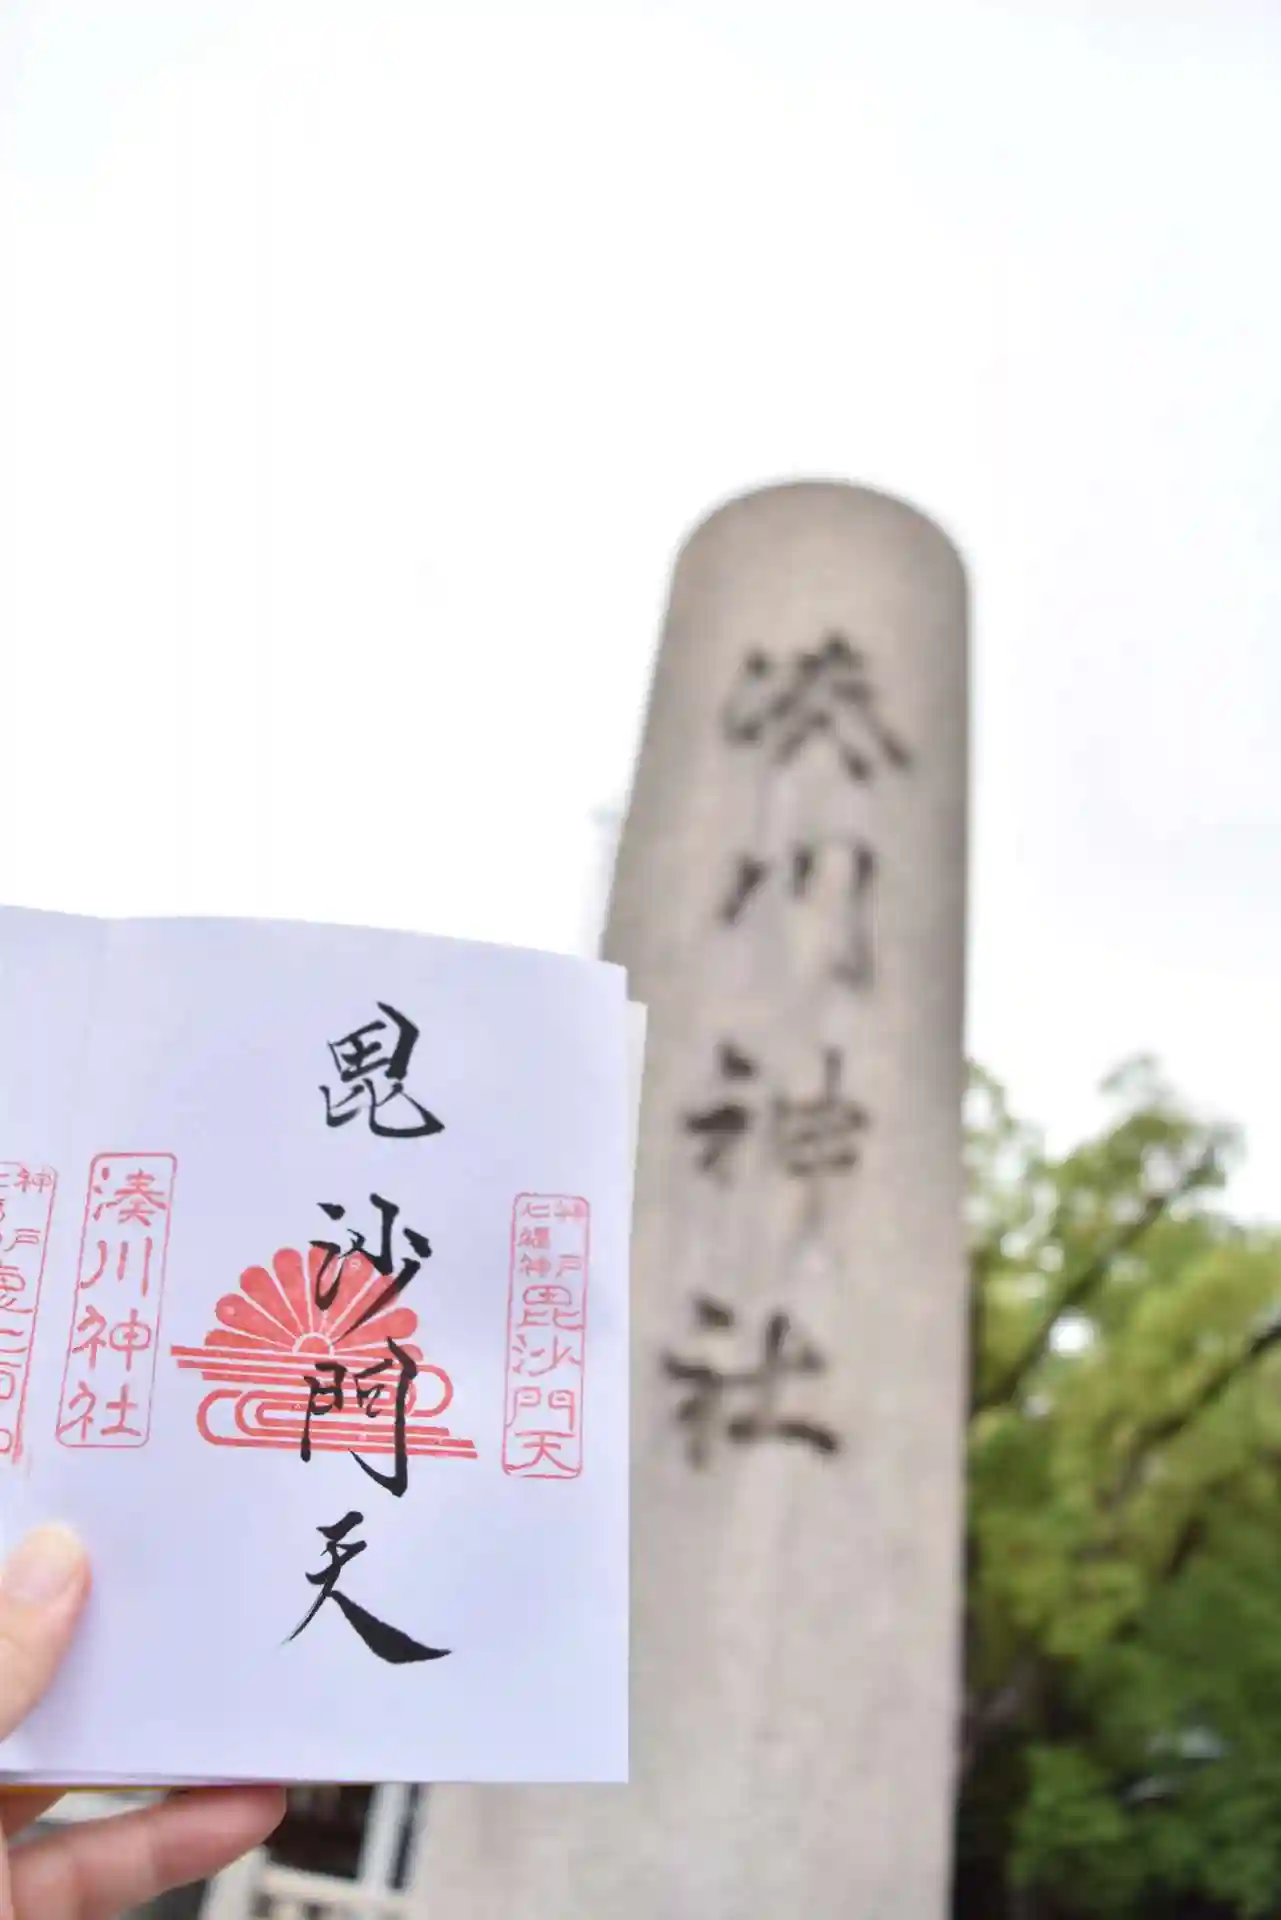 湊川神社
神戸
七福神
毘沙門天
毘沙門天
湊川神社
神戸